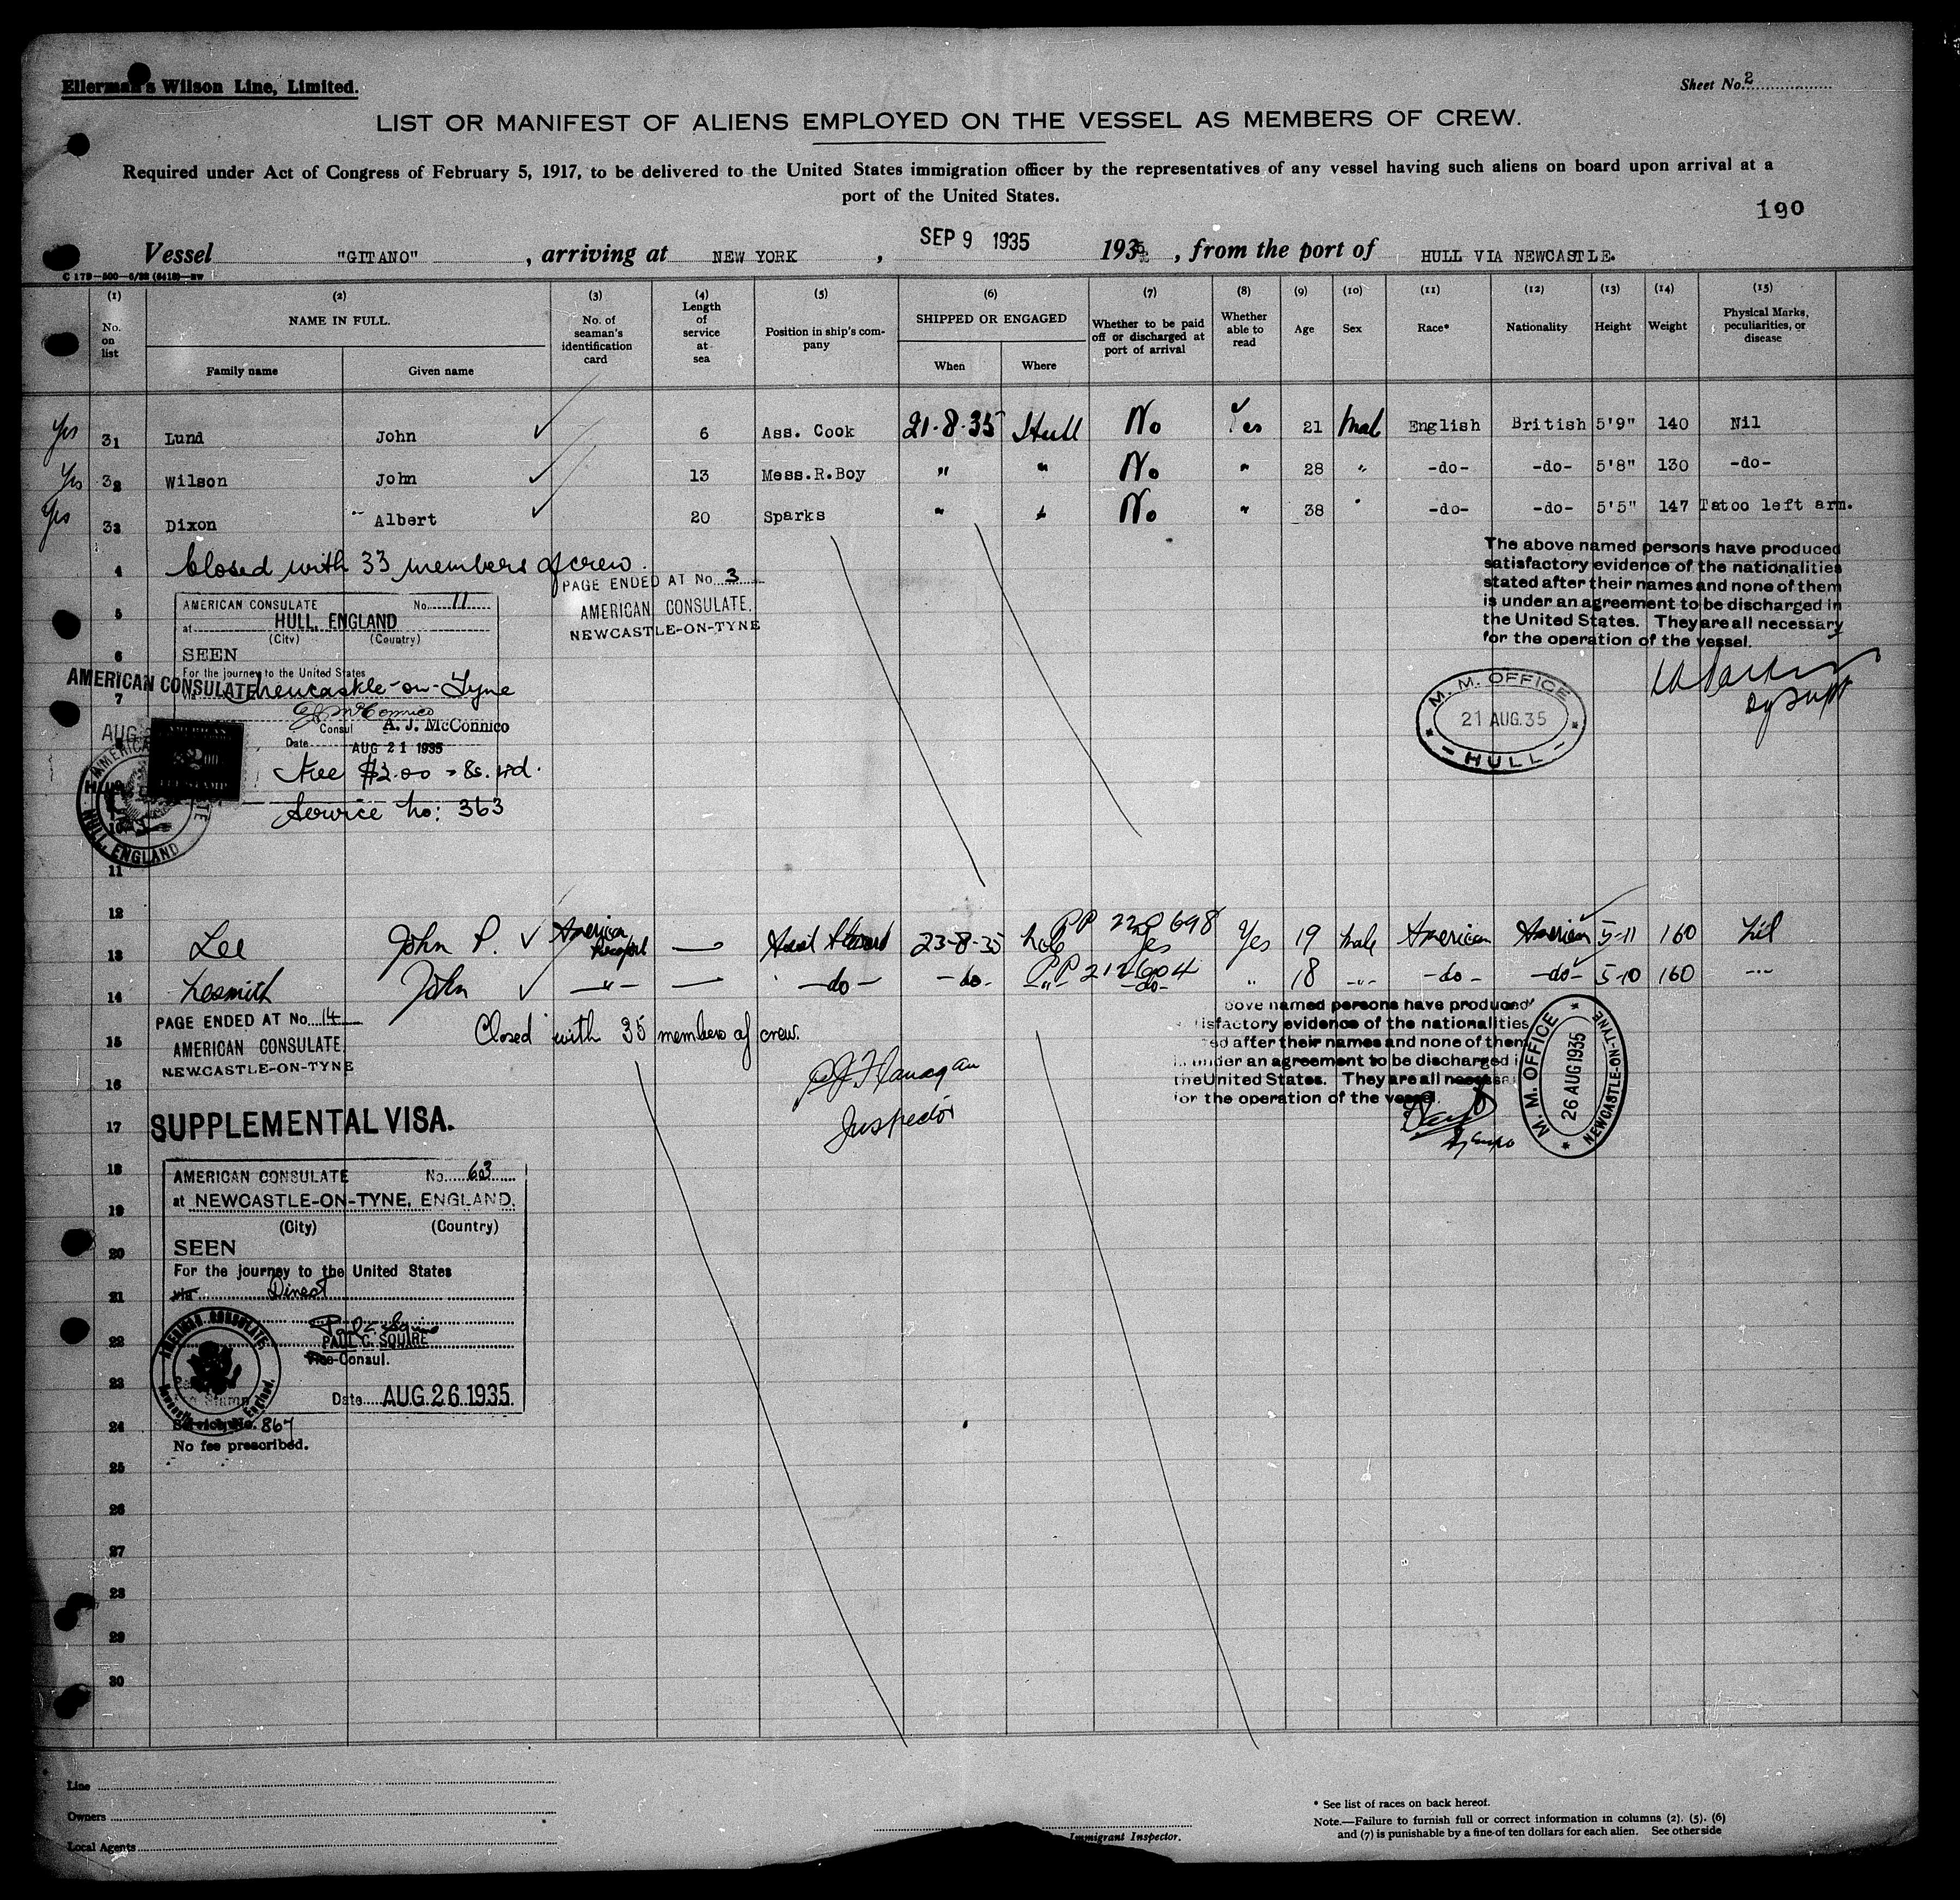 Ellerman's Wilson Line, Limited.
Sheet No. 2
LIST OR MANIFEST OF ALIENS EMPLOYED ON THE VESSEL AS MEMBERS OF CREW.
Required under Act of Congress of February 5, 1917, to be delivered to the United States immigration officer by the representatives of any vessel having such aliens on board upon arrival at a
port of the United States.
190
Vessel "GITANO", arriving at NEW YORK, SEP 9 1935 1935, from the port of HULL VIA NEWCASTLE.
C 179-500-5/33 (6418)-NW
(1) (2) (3) (4) (5) (6) (7) (8) (9) (10) (11) (12) (13) (14) (15)
No. on list
NAME IN FULL.
Family name Given name
No. of seaman's identification card
Length of service at sea
Position in ship's company
SHIPPED OR ENGAGED
When Where
Whether to be paid off or discharged at port of arrival
Whether able to read
Age Sex Race* Nationality Height Weight
Physical Marks, peculiarities, or disease
Yes 31 Lund John 6 Ass. Cook 21-8-35 Hull No Yes 21 Mal English British 5'9" 140 Nil
Yes 32 Wilson John 13 Mess.R.Boy " " No " 28 " -do- -do- 5'8" 130 -do-
Yes 33 Dixon Albert 20 Sparks " " No " 38 " -do- -do- 5'5" 147 Tatoo left arm.
4 Closed with 33 members of crew.
PAGE ENDED AT No. 3
AMERICAN CONSULATE.
NEWCASTLE-ON-TYNE
The above named persons have produced
satisfactory evidence of the nationalities
stated after their names and none of them
is under an agreement to be discharged in
the United States. They are all necessary
for the operation of the vessel.
M. M. OFFICE
21 AUG. 35
HULL
5
AMERICAN CONSULATE No. 11
at HULL, ENGLAND
(City) (Country)
6
SEEN
For the journey to the United States
AMERICAN CONSULATE
7
via Newcastle-on-Tyne
Consul A. J. McConnico
AUG
Date AUG 21 1935
Fee $2.00 = 8s. 4d.
Service No: 363
HULL, ENGLAND
10
11
12
13 Lee John P. American Passport — Asst Steward 23-8-35 PP 228698 Yes Yes 19 Male American American 5-11 160 Nil
14 Nesmith John -"- — -do- -do- -"- PP 212604 -do- " 18 -"- -do- -do- 5-10 160 ---
PAGE ENDED AT No. 14
AMERICAN CONSULATE.
NEWCASTLE-ON-TYNE
15 Closed with 35 members of crew.
16
Flanagan
Inspector
bove named persons have produced
isfactory evidence of the nationalities
ed after their names and none of them
under an agreement to be discharged i
the United States. They are all necessa
for the operation of the vessel.
M. M. OFFICE
26 AUG 1935
NEWCASTLE-ON-TYNE
17 SUPPLEMENTAL VISA.
18
AMERICAN CONSULATE No. 63
at NEWCASTLE-ON-TYNE, ENGLAND.
19
(City) (Country)
20
SEEN
For the journey to the United States
21
via Direct
22
PAUL C. SQUIRE
Vice-Consul.
AMERICAN CONSULATE
23
Date AUG. 26. 1935
24
Service No. 867
No fee prescribed.
25
26
27
28
29
30
Line
Owners
Local Agents
Immigrant Inspector.
* See list of races on back hereof.
Note.—Failure to furnish full or correct information in columns (2). (5). (6)
and (7) is punishable by a fine of ten dollars for each alien. See other side